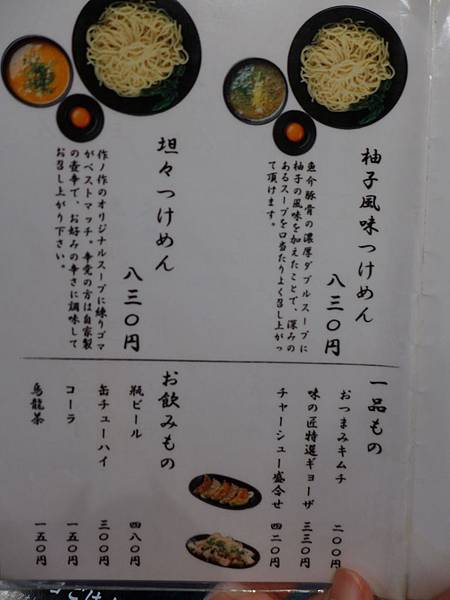 柚子風味つけめん
八三〇円
魚介豚骨の濃厚ダブルスープに
柚子の風味を加えたことで、深みの
あるスープを口当たりよく召し上がっ
て頂けます。
坦々つけめん
八三〇円
作ノ作のオリジナルスープに練りゴマ
がベストマッチ。辛党の方は自家製
の壺辛で、お好みの辛さに調味して
お召し上がり下さい。
一品もの
おつまみキムチ 二〇〇円
味の匠特選ギョーザ 三三〇円
チャーシュー盛合せ 四二〇円
お飲みもの
瓶ビール 四八〇円
缶チューハイ 三〇〇円
コーラ 一五〇円
烏龍茶 一五〇円